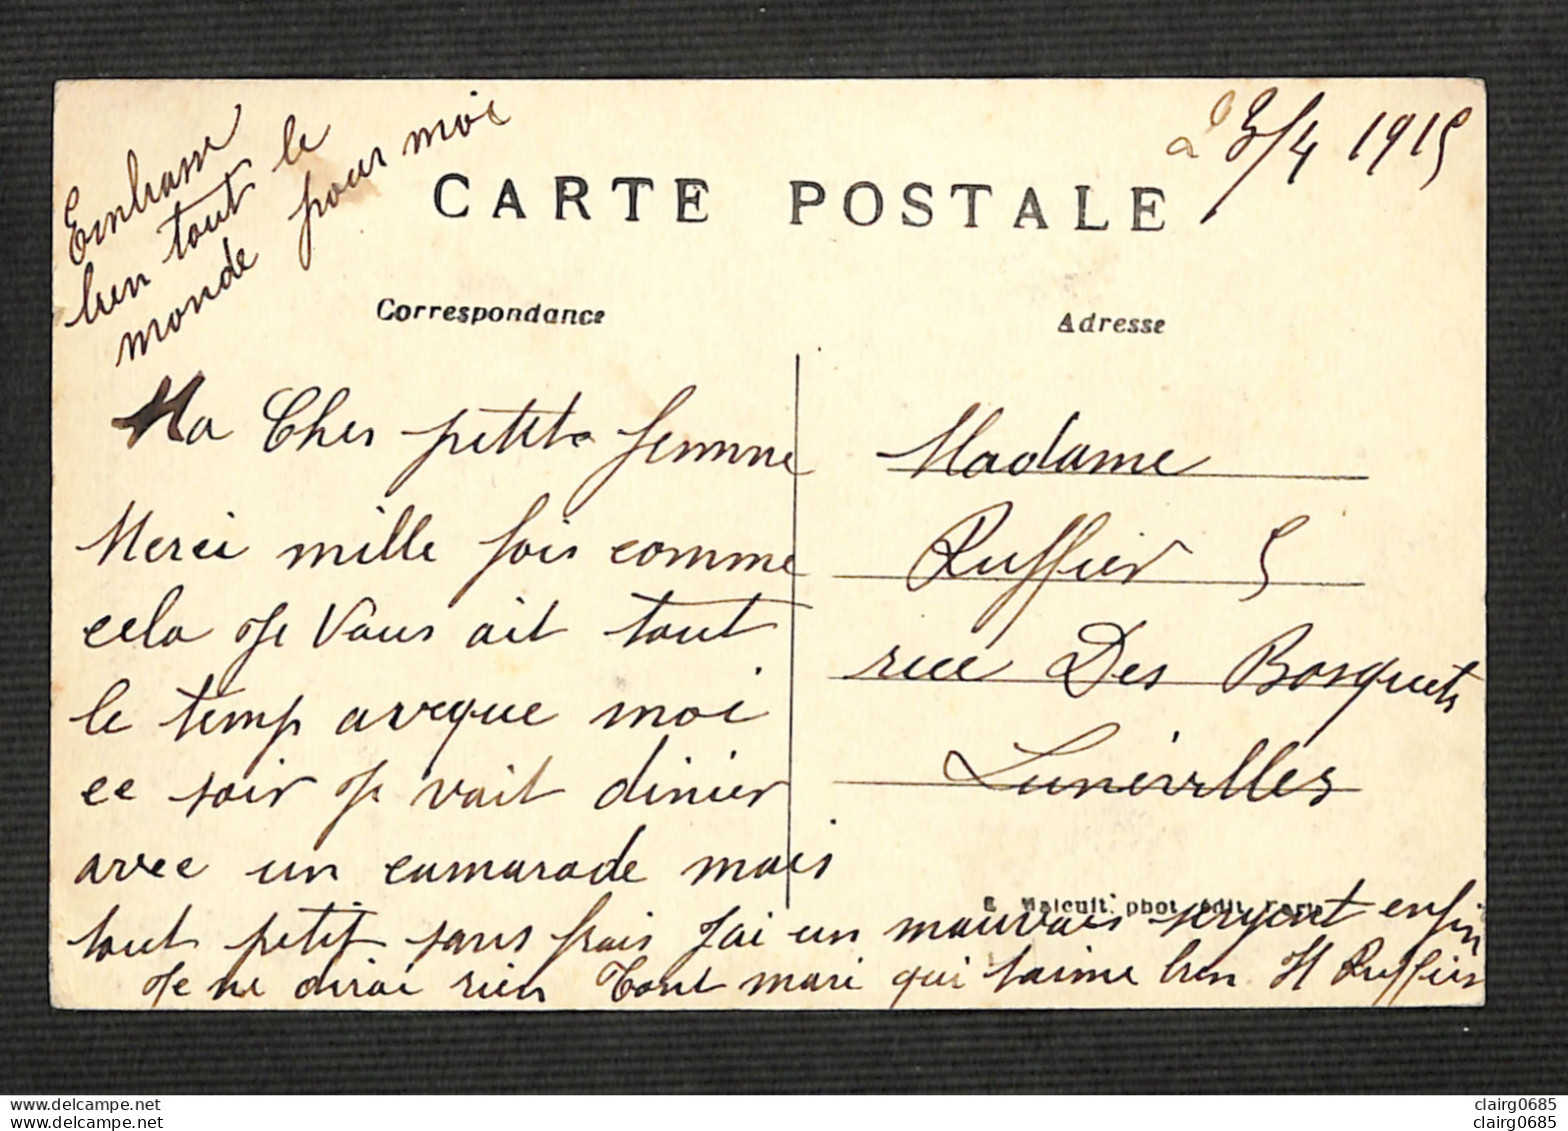 23/4 1915
Embrasse
bien tout le
monde pour moi
CARTE POSTALE
Correspondance
Adresse
Ma Cher petite femme
Merci mille fois comme
cela Je Vous ait tout
le temp aveque moi
ce soir Je vait dinier
avec un camarade mais
tout petit sans frais J'ai un mauvais sergent enfin
Je ne dirai rien Tont mari qui taime bien H Ruffier
Madame
Ruffier 5
rue Des Bosquets
Lunévilles
phot édit
clairg0685
www.delcampe.net
clairg0685